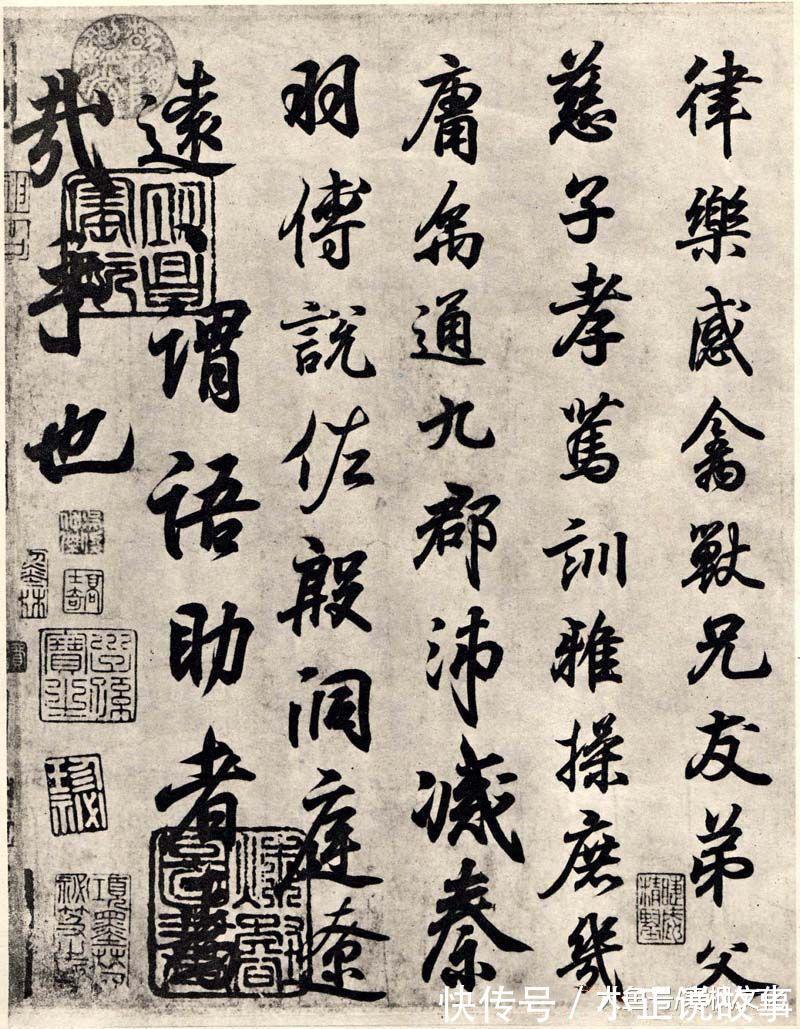 律樂感禽獸兄友弟父
慈子孝篤訓雅操庶幾
庸禹通九郡沛滅秦
羽傅說佐殷洞庭遼
遠謂語助者焉
哉乎也
快传号 /